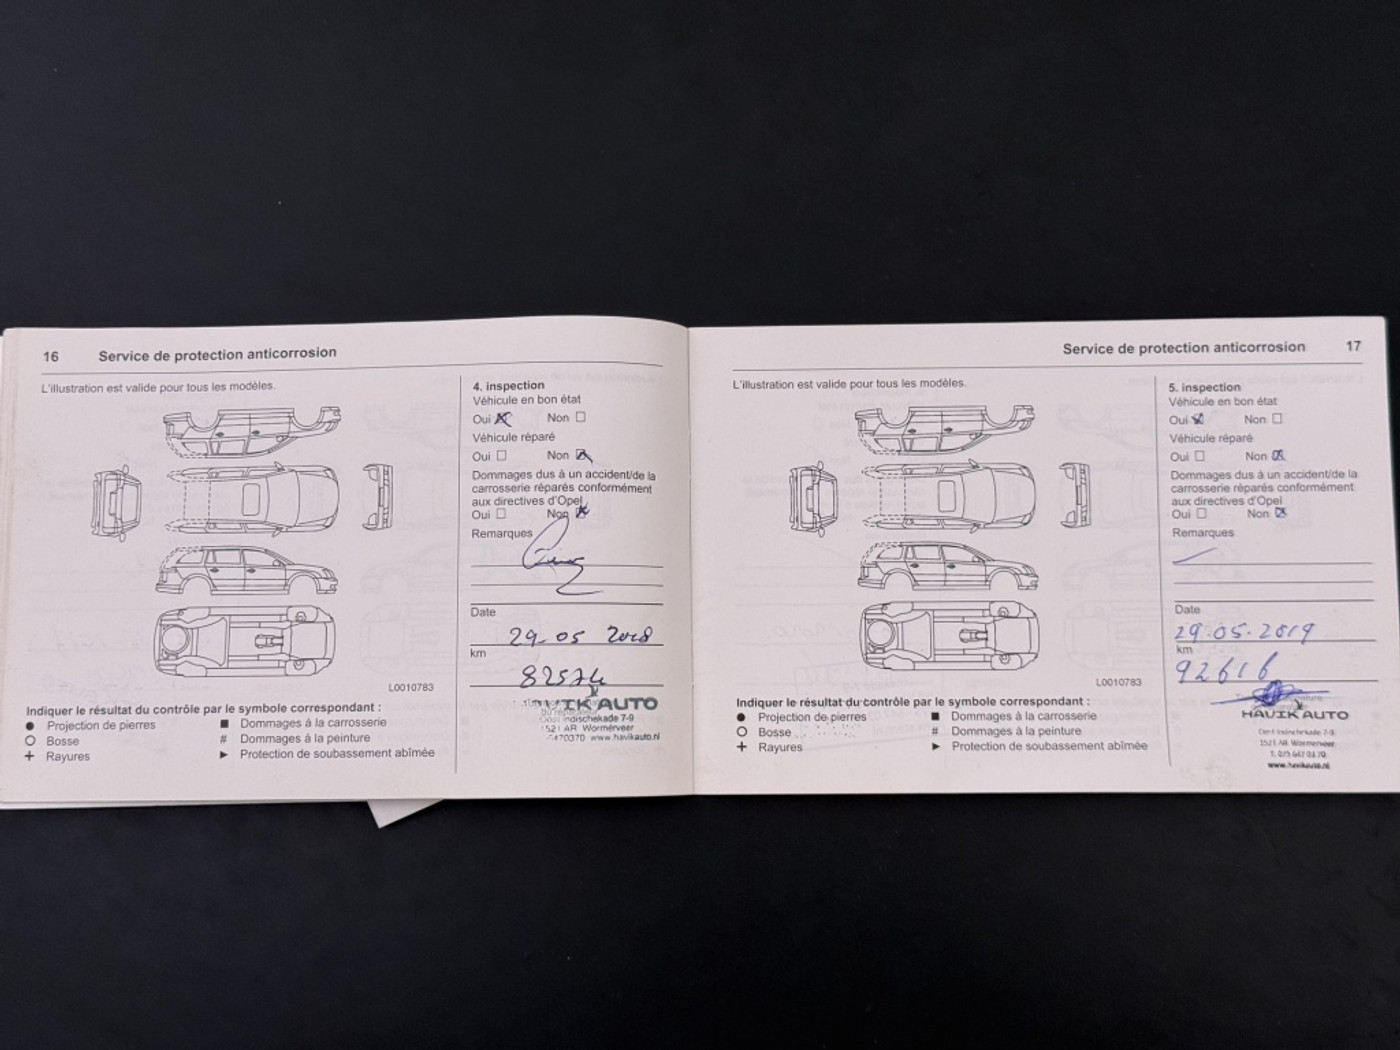 16 Service de protection anticorrosion
L'illustration est valide pour tous les modèles.
L0010783
Indiquer le résultat du contrôle par le symbole correspondant :
● Projection de pierres
○ Bosse
+ Rayures
■ Dommages à la carrosserie
# Dommages à la peinture
► Protection de soubassement abîmée
4. inspection
Véhicule en bon état
Oui Non
Véhicule réparé
Oui Non
Dommages dus à un accident/de la
carrosserie réparés conformément
aux directives d'Opel
Oui Non
Remarques
Date
29-05 2018
km
82574
AUTO
Oost Indischekade 7-9
1521 AR Wormerveer
www.havikauto.nl
Service de protection anticorrosion 17
L'illustration est valide pour tous les modèles.
L0010783
Indiquer le résultat du contrôle par le symbole correspondant :
● Projection de pierres
○ Bosse
+ Rayures
■ Dommages à la carrosserie
# Dommages à la peinture
► Protection de soubassement abîmée
5. inspection
Véhicule en bon état
Oui Non
Véhicule réparé
Oui Non
Dommages dus à un accident/de la
carrosserie réparés conformément
aux directives d'Opel
Oui Non
Remarques
Date
29-05-2019
km
92616
HAVIK AUTO
Oost Indischekade 7-9
1521 AR Wormerveer
T. 075 647 03 70
www.havikauto.nl